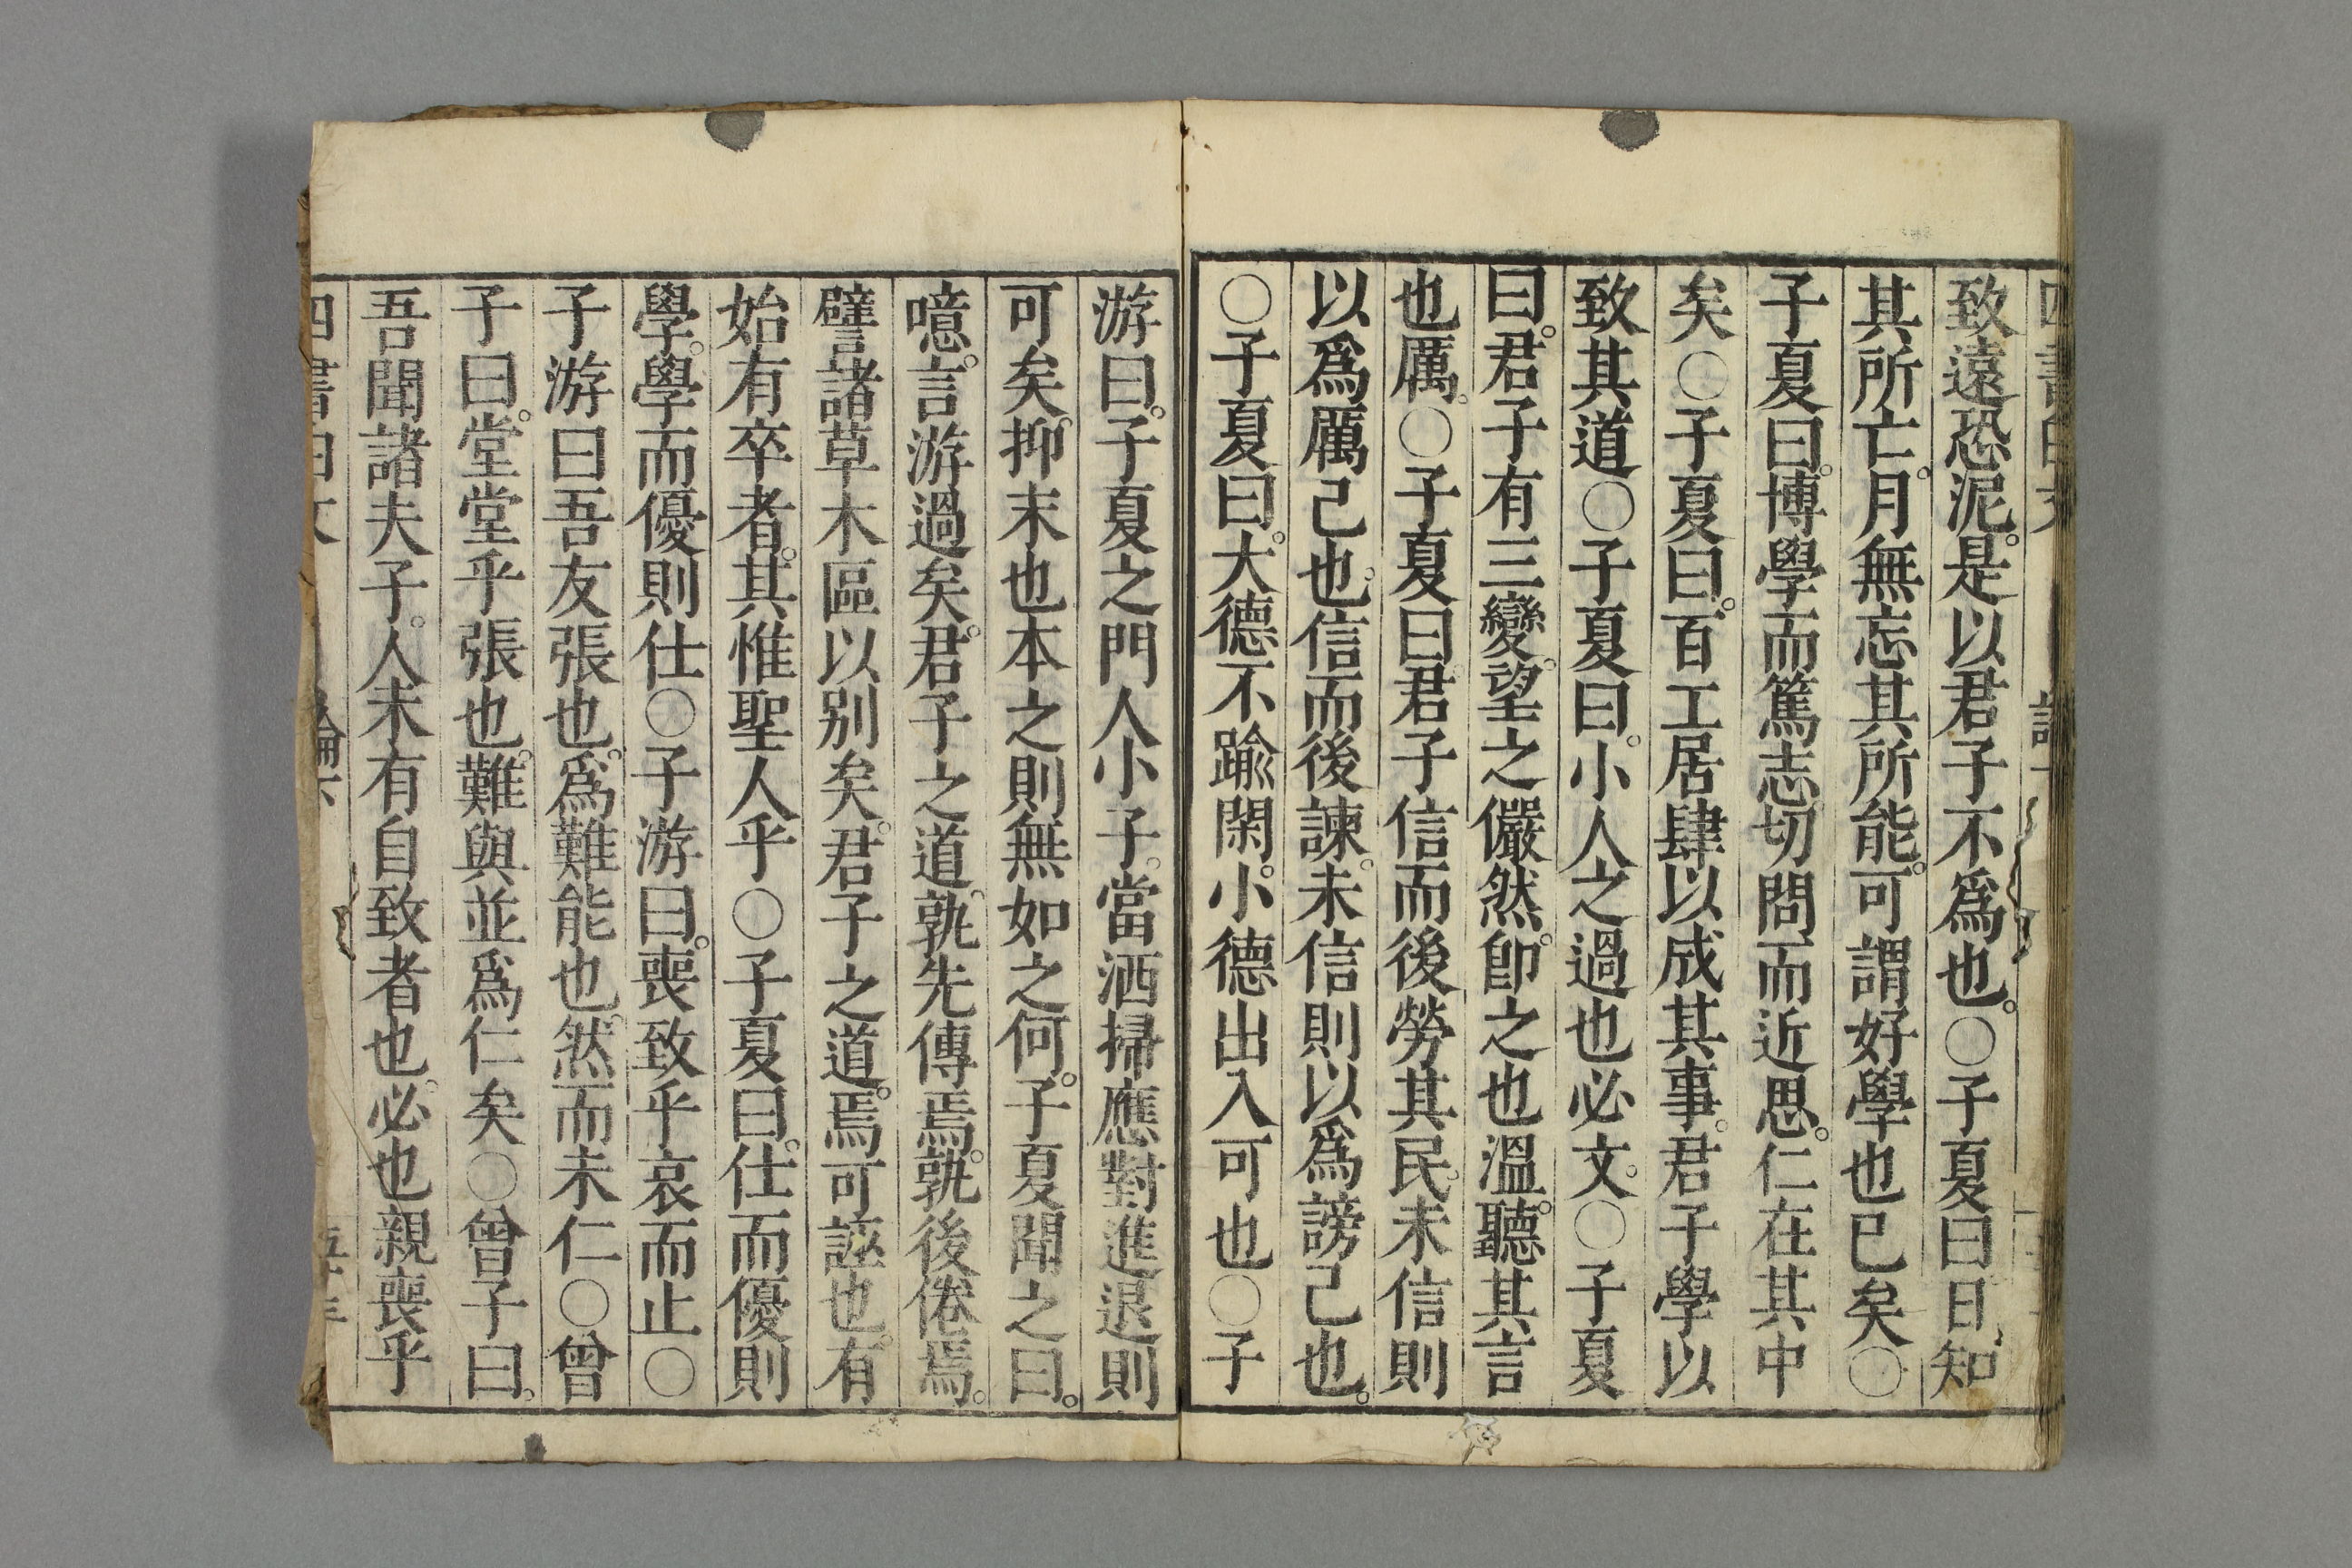 致遠恐泥。是以君子不爲也。○子夏曰日知
其所亡。月無忘其所能。可謂好學也已矣○
子夏曰。博學而篤志切問而近思。仁在其中
矣○子夏曰。百工居肆以成其事。君子學以
致其道○子夏曰。小人之過也必文。○子夏
曰。君子有三變。望之儼然。卽之也溫。聽其言
也厲。○子夏曰。君子信而後勞其民。未信則
以爲厲己也。信而後諫。未信則以爲謗己也。
○子夏曰。大德不踰閑。小德出入可也○子
游曰。子夏之門人小子。當洒掃應對進退則
可矣。抑末也本之則無如之何。子夏聞之曰。
噫。言游過矣。君子之道。孰先傳焉。孰後倦焉。
譬諸草木區以別矣。君子之道。焉可誣也。有
始有卒者。其惟聖人乎○子夏曰。仕而優則
學。學而優則仕○子游曰。喪致乎哀而止○
子游曰吾友張也。爲難能也。然而未仁○曾
子曰。堂堂乎張也。難與並爲仁矣○曾子曰。
吾聞諸夫子。人未有自致者也。必也親喪乎
四書白文